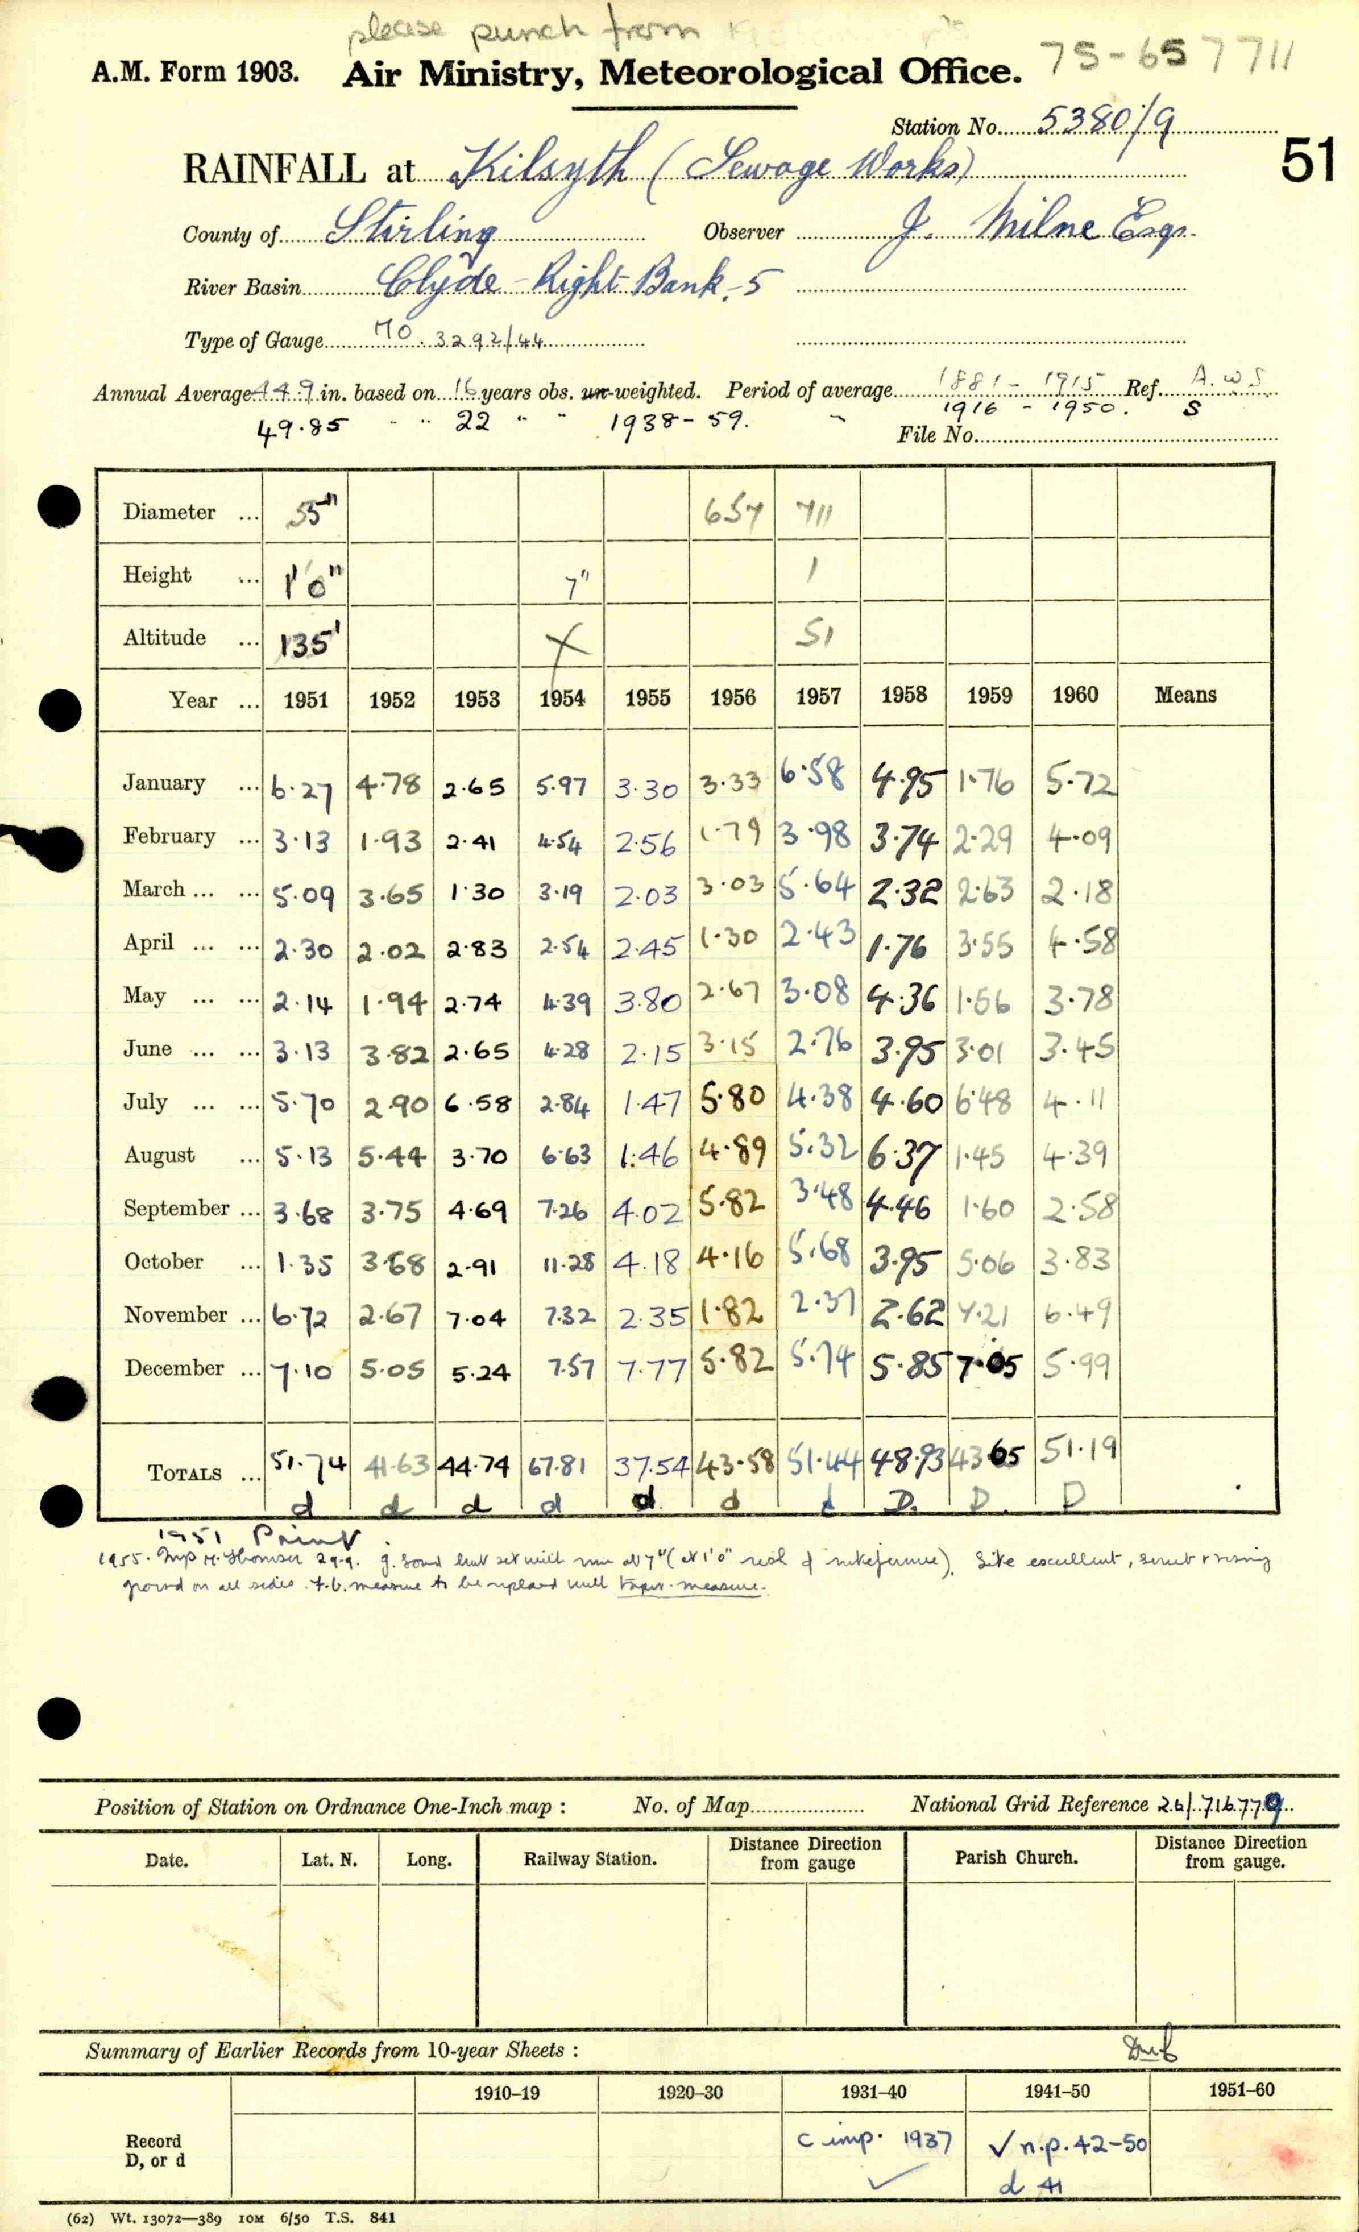 please punch from
75-657711
A.M. Form 1903. Air Ministry, Meteorological Office.
Station No. 5380/9
51
RAINFALL at Kilsyth (Sewage Works)
County of Stirling Observer J. Milne Esqr.
River Basin Clyde - Right Bank - 5
Type of Gauge MO. 3292/44
Annual Average 44.9 in. based on 16 years obs. un-weighted. Period of average 1881 - 1915 Ref. A.W.S
49.85 " " 22 " " 1938-59. " 1916 - 1950. S
File No.
Diameter ... 5" 657 711
Height ... 1'0" 7" 1
Altitude ... 135' X 51
Year ... 1951 1952 1953 1954 1955 1956 1957 1958 1959 1960 Means
January ... 6.27 4.78 2.65 5.97 3.30 3.33 6.58 4.95 1.76 5.72
February ... 3.13 1.93 2.41 4.54 2.56 1.79 3.98 3.74 2.29 4.09
March ... ... 5.09 3.65 1.30 3.19 2.03 3.03 5.64 2.32 2.63 2.18
April ... ... 2.30 2.02 2.83 2.54 2.45 1.30 2.43 1.76 3.55 4.58
May ... ... 2.14 1.94 2.74 4.39 3.80 2.67 3.08 4.36 1.56 3.78
June ... ... 3.13 3.82 2.65 4.28 2.15 3.15 2.76 3.95 3.01 3.45
July ... ... 5.70 2.90 6.58 2.84 1.47 5.80 4.38 4.60 6.48 4.11
August ... 5.13 5.44 3.70 6.63 1.46 4.89 5.32 6.37 1.45 4.39
September ... 3.68 3.75 4.69 7.26 4.02 5.82 3.48 4.46 1.60 2.58
October ... 1.35 3.68 2.91 11.28 4.18 4.16 5.68 3.95 5.06 3.83
November ... 6.72 2.67 7.04 7.32 2.35 1.82 2.37 2.62 7.21 6.49
December ... 7.10 5.05 5.24 7.57 7.77 5.82 5.74 5.85 7.05 5.99
TOTALS ... 51.74 41.63 44.74 67.81 37.54 43.58 51.44 48.93 43.65 51.19
d d d d d d d D. D. D
1951 Print
1955. Insp 29.9. g. sound but set with rim at 7" (at 1'0" Site excellent,
ground on all sides. measure to be replaced with taper-measure.
Position of Station on Ordnance One-Inch map : No. of Map National Grid Reference 26/716779
Date. Lat. N. Long. Railway Station. Distance from gauge Direction Parish Church. Distance from gauge. Direction
Summary of Earlier Records from 10-year Sheets :
1910-19 1920-30 1931-40 1941-50 1951-60
Record D, or d c imp. 1937 ✓ ✓ n.p. 42-50
d 41
(62) Wt. 13072—389 10M 6/50 T.S. 841